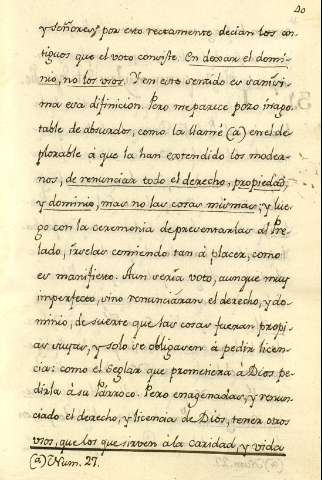 40
y señores; por esto rectamente decian los an-
tiguos que el voto consiste. En dexar el domi-
nio, no los usos. Y en este sentido es sanisi-
ma esa difinicion. Pero me parece pozo inago-
table de absurdos, como la llamé (a) en el de-
plorable á que la han extendido los moder-
nos, de renunciar todo el derecho, propiedad,
y dominio, mas no las cosas mismas; y lue-
go con la ceremonia de presentarlas al Pre-
lado, irselas comiendo tan á placer, como
es manifiesto. Aun sería voto, aunque muy
imperfecto, sino renunciáran el derecho, y do-
minio, de suerte que las cosas fueran propi-
as suyas, y solo se obligasen á pedir licen-
cia: como el Seglar que prometiera á Dios pe-
dirla á su Párroco. Pero enagenadas, y renun-
ciado el derecho, y licencia de Dios, tener otros
usos, que los que sirven á la caridad, y vida
(a) Num. 27.